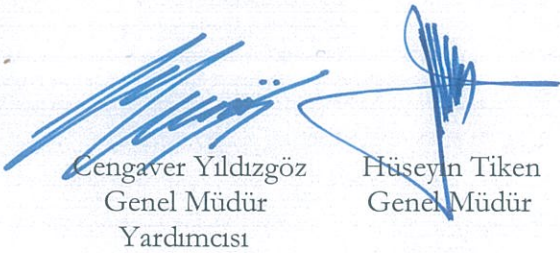 Cengaver Yıldızgöz
Genel Müdür
Yardımcısı
Hüseyin Tiken
Genel Müdür